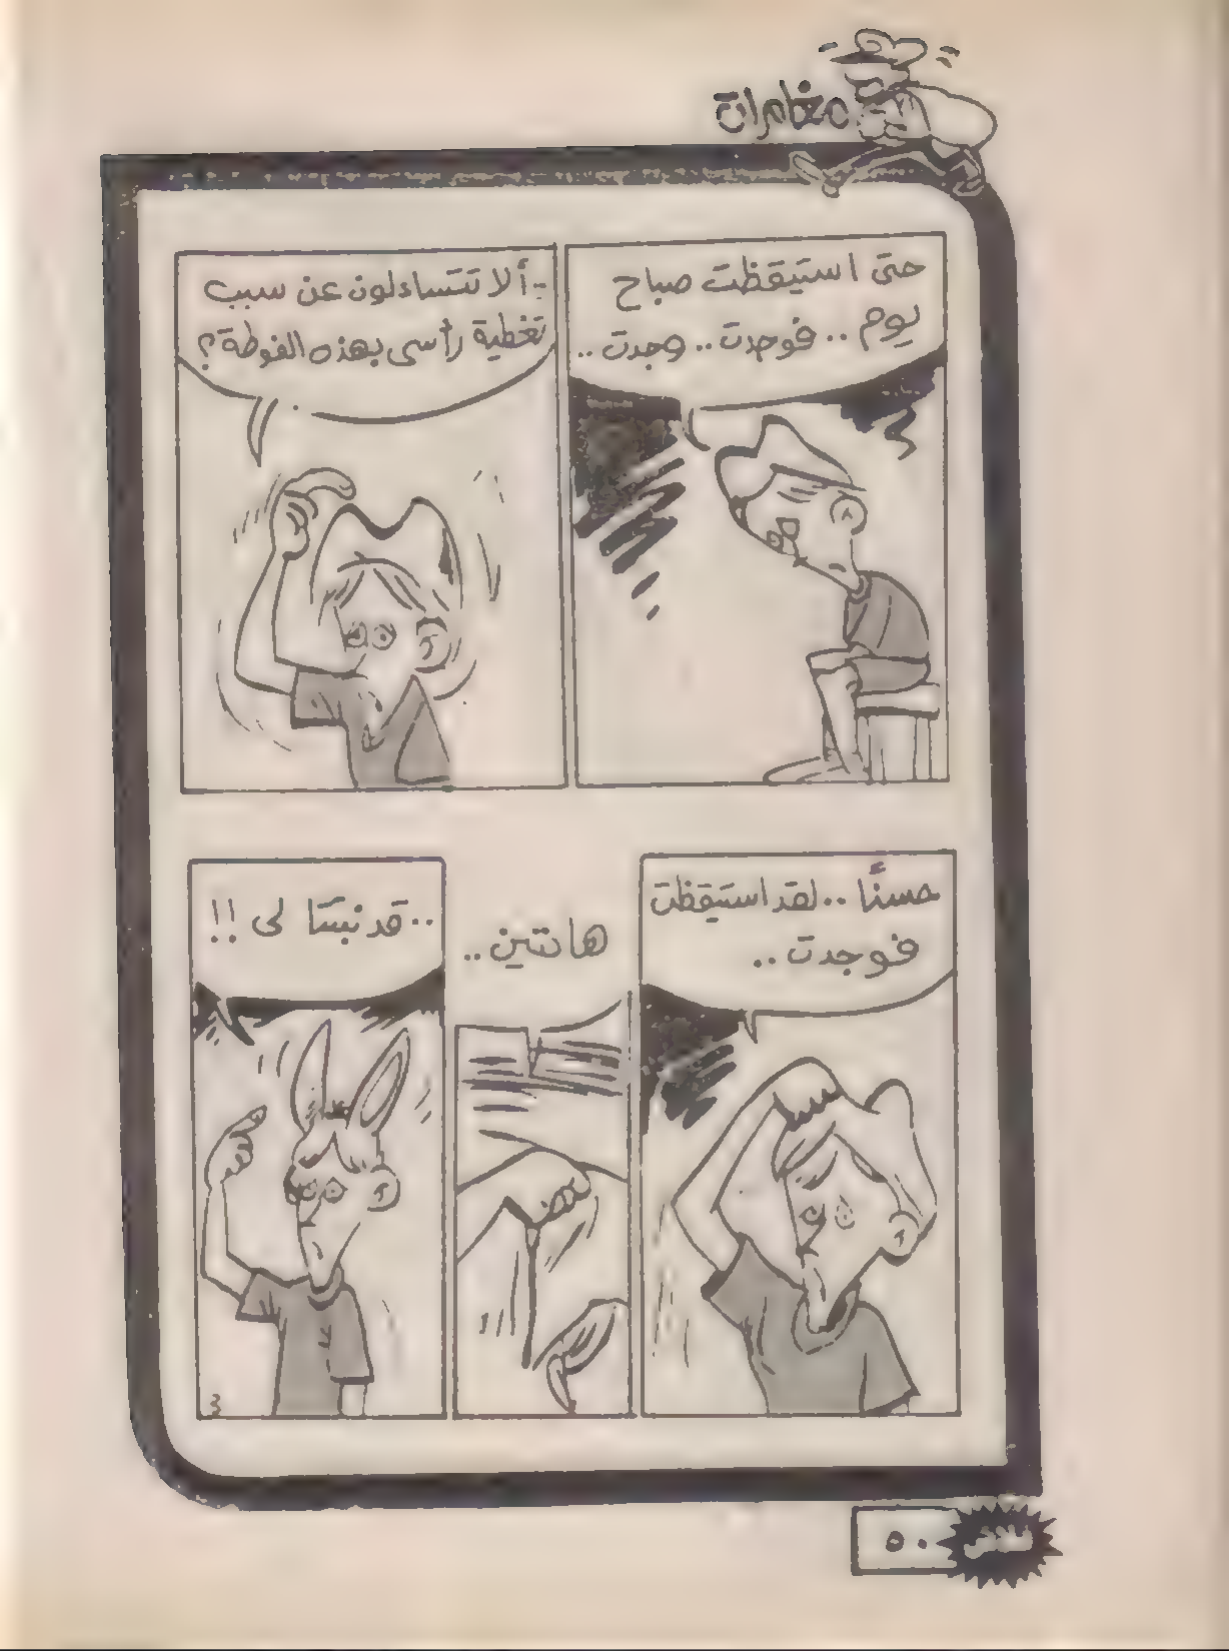 مغامرات
حتى استيقظت صباح
يوم .. فوجدت .. وجدت ..
.. ألا تتساءلون عن سبب
تغطية رأسى بهذه الفوطة؟
حسنًا .. لقد استيقظت
فوجدت ..
هاتين ..
.. قد نبتتا لى !!
3
فلاش
٥٠